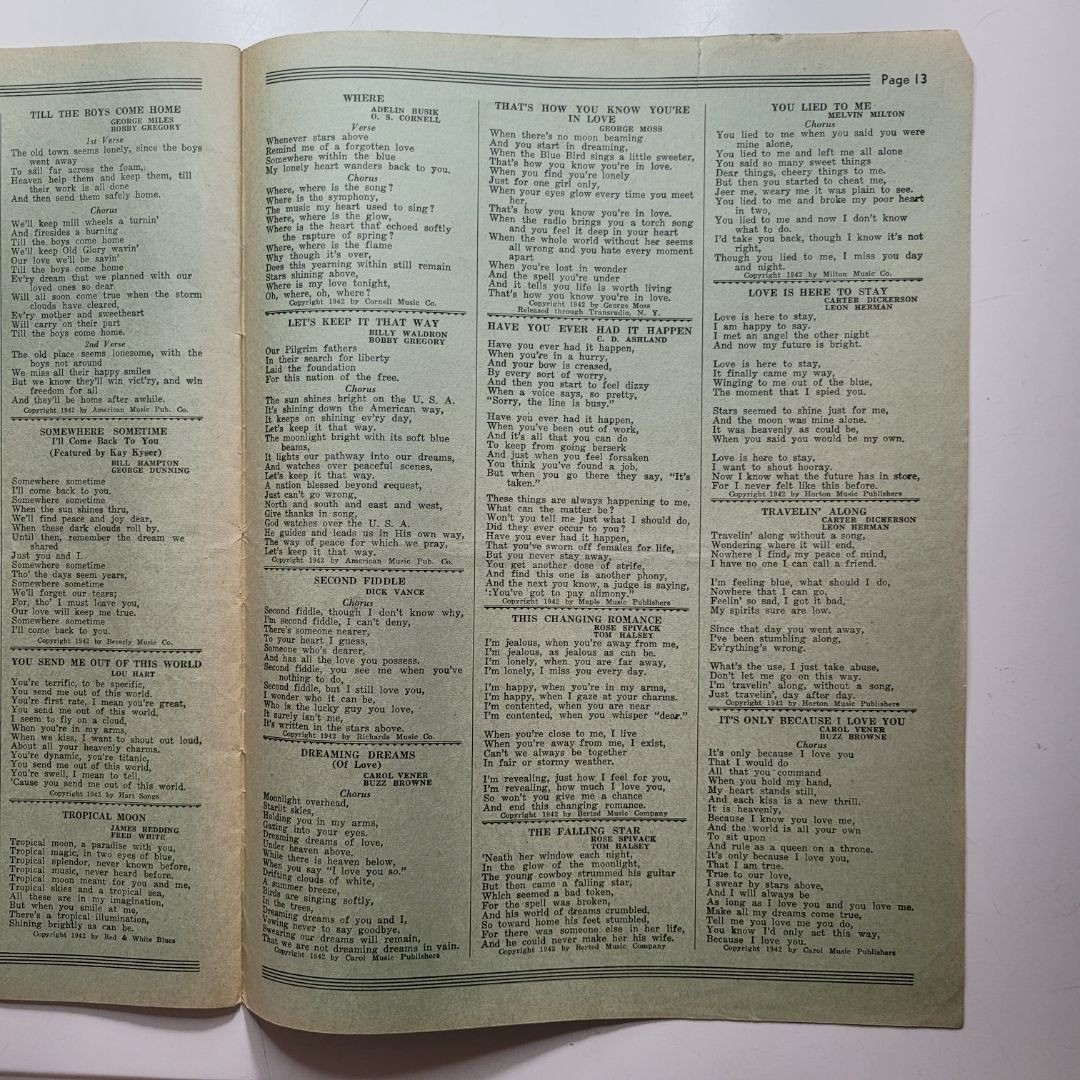 TILL THE BOYS COME HOME
GEORGE MILES
BOBBY GREGORY
1st Verse
The old town seems lonely, since the boys
went away
To sail far across the foam,
Heaven help them and keep them, till
their work is all done
And then send them safely home.
Chorus
We'll keep mill wheels a turnin'
And firesides a burning
Till the boys come home
We'll keep Old Glory wavin'
Our love we'll be savin'
Till the boys come home
Ev'ry dream that we planned with our
loved ones so dear
Will all soon come true when the storm
clouds have cleared,
Ev'ry mother and sweetheart
Will carry on their part
Till the boys come home.
2nd Verse
The old place seems lonesome, with the
boys not around
We miss all their happy smiles
But we know they'll win vict'ry, and win
freedom for all
And they'll be home after awhile.
Copyright 1942 by American Music Pub. Co.
SOMEWHERE SOMETIME
I'll Come Back To You
(Featured by Kay Kyser)
BILL HAMPTON
GEORGE DUNNING
Somewhere sometime
I'll come back to you.
Somewhere sometime
When the sun shines thru,
We'll find peace and joy dear,
When these dark clouds roll by.
Until then, remember the dream we
shared
Just you and I.
Somewhere sometime
Tho' the days seem years,
Somewhere sometime
We'll forget our tears;
For, tho' I must leave you,
Our love will keep me true.
Somewhere sometime
I'll come back to you.
Copyright 1942 by Beverly Music Co.
YOU SEND ME OUT OF THIS WORLD
LOU HART
You're terrific, to be specific,
You send me out of this world.
You're first rate, I mean you're great,
You send me out of this world.
I seem to fly on a cloud,
When you're in my arms,
When we kiss, I want to shout out loud,
About all your heavenly charms.
You're dynamic, you're titanic,
You send me out of this world,
You're swell, I mean to tell,
'Cause you send me out of this world.
Copyright 1942 by Hart Songs
TROPICAL MOON
JAMES REDDING
FRED WHITE
Tropical moon, a paradise with you,
Tropical magic, in two eyes of blue,
Tropical splendor, never known before,
Tropical music, never heard before.
Tropical moon meant for you and me,
Tropical skies and a tropical sea,
All these are in my imagination,
But when you smile at me,
There's a tropical illumination,
Shining brightly as can be.
Copyright 1942 by Red & White Blues
Page 13
WHERE
ADELIN RUSIK
O. S. CORNELL
Verse
Whenever stars above
Remind me of a forgotten love
Somewhere within the blue
My lonely heart wanders back to you.
Chorus
Where, where is the song?
Where is the symphony,
The music my heart used to sing?
Where, where is the glow,
Where is the heart that echoed softly
the rapture of spring?
Where, where is the flame
Why though it's over,
Does this yearning within still remain
Stars shining above,
Where is my love tonight,
Oh, where, oh, where?
Copyright 1942 by Cornell Music Co.
LET'S KEEP IT THAT WAY
BILLY WALDRON
BOBBY GREGORY
Our Pilgrim fathers
In their search for liberty
Laid the foundation
For this nation of the free.
Chorus
The sun shines bright on the U. S. A.
It's shining down the American way,
It keeps on shining ev'ry day,
Let's keep it that way.
The moonlight bright with its soft blue
beams,
It lights our pathway into our dreams,
And watches over peaceful scenes,
Let's keep it that way.
A nation blessed beyond request,
Just can't go wrong,
North and south and east and west,
Give thanks in song,
God watches over the U. S. A.
He guides and leads us in His own way,
The way of peace for which we pray,
Let's keep it that way.
Copyright 1942 by American Music Pub. Co.
SECOND FIDDLE
DICK VANCE
Chorus
Second fiddle, though I don't know why,
I'm second fiddle, I can't deny,
There's someone nearer,
To your heart I guess,
Someone who's dearer,
And has all the love you possess.
Second fiddle, you see me when you've
nothing to do,
Second fiddle, but I still love you,
I wonder who it can be,
Who is the lucky guy you love,
It surely isn't me,
It's written in the stars above.
Copyright 1942 by Richards Music Co.
DREAMING DREAMS
(Of Love)
CAROL VENER
BUZZ BROWNE
Chorus
Moonlight overhead,
Starlit skies,
Holding you in my arms,
Gazing into your eyes.
Dreaming dreams of love,
Under heaven above,
While there is heaven below,
When you say "I love you so."
Drifting clouds of white,
A summer breeze,
Birds are singing softly,
In the trees,
Dreaming dreams of you and I,
Vowing never to say goodbye,
Swearing our dreams will remain,
That we are not dreaming dreams in vain.
Copyright 1942 by Carol Music Publishers
THAT'S HOW YOU KNOW YOU'RE
IN LOVE
GEORGE MOSS
When there's no moon beaming
And you start in dreaming,
When the Blue Bird sings a little sweeter,
That's how you know you're in love.
When you find you're lonely
Just for one girl only,
When your eyes glow every time you meet
her,
That's how you know you're in love.
When the radio brings you a torch song
and you feel it deep in your heart
When the whole world without her seems
all wrong and you hate every moment
apart
When you're lost in wonder
And the spell you're under
And it tells you life is worth living
That's how you know you're in love.
Copyright 1942 by George Moss
Released through Transradio, N. Y.
HAVE YOU EVER HAD IT HAPPEN
C. D. ASHLAND
Have you ever had it happen,
When you're in a hurry,
And your bow is creased,
By every sort of worry,
And then you start to feel dizzy
When a voice says, so pretty,
"Sorry, the line is busy."
Have you ever had it happen,
When you've been out of work,
And it's all that you can do
To keep from going berserk
And just when you feel forsaken
You think you've found a job,
But when you go there they say, "It's
taken."
These things are always happening to me,
What can the matter be?
Won't you tell me just what I should do,
Did they ever occur to you?
Have you ever had it happen,
That you've sworn off females for life,
But you never stay away,
You get another dose of strife,
And find this one is another phony,
And the next you know, a judge is saying,
':You've got to pay alimony."
Copyright 1942 by Maple Music Publishers
THIS CHANGING ROMANCE
ROSE SPIVACK
TOM HALSEY
I'm jealous, when you're away from me,
I'm jealous, as jealous as can be.
I'm lonely, when you are far away,
I'm lonely, I miss you every day.
I'm happy, when you're in my arms,
I'm happy, when I gaze at your charms.
I'm contented, when you are near
I'm contented, when you whisper "dear."
When you're close to me, I live
When you're away from me, I exist,
Can't we always be together
In fair or stormy weather.
I'm revealing, just how I feel for you,
I'm revealing, how much I love you,
So won't you give me a chance
And end this changing romance.
Copyright 1942 by Berted Music Company
THE FALLING STAR
ROSE SPIVACK
TOM HALSEY
'Neath her window each night,
In the glow of the moonlight,
The young cowboy strummed his guitar
But then came a falling star,
Which seemed a bad token,
For the spell was broken,
And his world of dreams crumbled,
So toward home his feet stumbled,
For there was someone else in her life,
And he could never make her his wife.
Copyright 1942 by Berted Music Company
YOU LIED TO ME
MELVIN MILTON
Chorus
You lied to me when you said you were
mine alone,
You lied to me and left me all alone
You said so many sweet things
Dear things, cheery things to me.
But then you started to cheat me,
Jeer me, weary me it was plain to see.
You lied to me and broke my poor heart
in two,
You lied to me and now I don't know
what to do.
I'd take you back, though I know it's not
right,
Though you lied to me, I miss you day
and night.
Copyright 1942 by Milton Music Co.
LOVE IS HERE TO STAY
CARTER DICKERSON
LEON HERMAN
Love is here to stay,
I am happy to say.
I met an angel the other night
And now my future is bright.
Love is here to stay,
It finally came my way,
Winging to me out of the blue,
The moment that I spied you.
Stars seemed to shine just for me,
And the moon was mine alone.
It was heavenly as could be,
When you said you would be my own.
Love is here to stay,
I want to shout hooray.
Now I know what the future has in store,
For I never felt like this before.
Copyright 1942 by Horton Music Publishers
TRAVELIN' ALONG
CARTER DICKERSON
LEON HERMAN
Travelin' along without a song,
Wondering where it will end,
Nowhere I find, my peace of mind,
I have no one I can call a friend.
I'm feeling blue, what should I do,
Nowhere that I can go,
Feelin' so sad, I got it bad,
My spirits sure are low.
Since that day you went away,
I've been stumbling along,
Ev'rything's wrong.
What's the use, I just take abuse,
Don't let me go on this way.
I'm travelin' along, without a song,
Just travelin', day after day.
Copyright 1942 by Horton Music Publishers
IT'S ONLY BECAUSE I LOVE YOU
CAROL VENER
BUZZ BROWNE
Chorus
It's only because I love you
That I would do
All that you command
When you hold my hand,
My heart stands still,
And each kiss is a new thrill.
It is heavenly,
Because I know you love me,
And the world is all your own
To sit upon
And rule as a queen on a throne.
It's only because I love you,
That I am true.
True to our love,
I swear by stars above,
And I will always be
As long as I love you and you love me.
Make all my dreams come true,
Tell me you love me you do,
You know I'd only act this way,
Because I love you.
Copyright 1942 by Carol Music Publishers